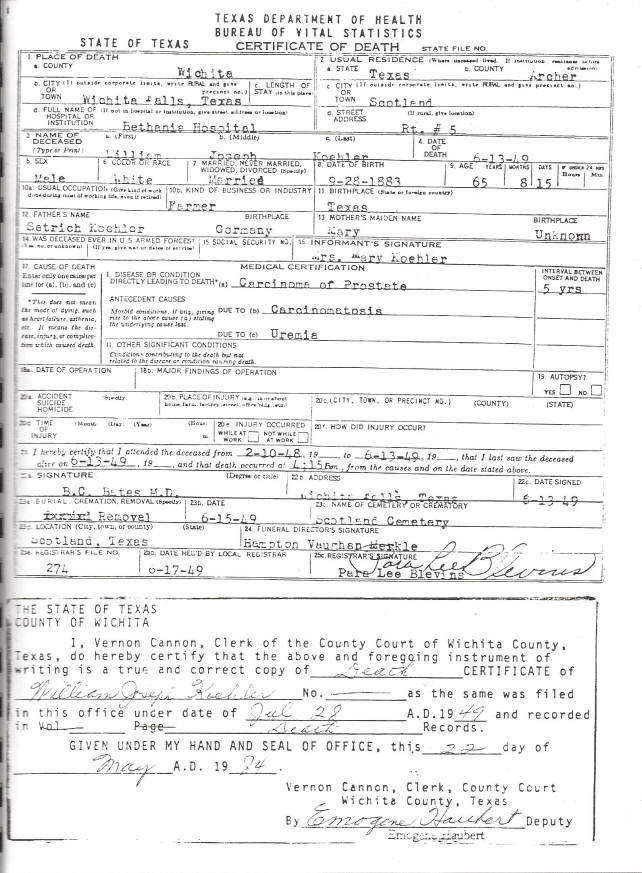 TEXAS DEPARTMENT OF HEALTH
BUREAU OF VITAL STATISTICS
STATE OF TEXAS CERTIFICATE OF DEATH STATE FILE NO.
1. PLACE OF DEATH 2 USUAL RESIDENCE (Where deceased lived. If institution: residence before admission)
a. COUNTY Wichita a. STATE Texas b. COUNTY Archer
b. CITY (If outside corporate limits, write RURAL and give precinct no.) OR TOWN Wichita Falls, Texas c. LENGTH OF STAY (in this place) c. CITY (If outside corporate limits, write RURAL and give precinct no.) OR TOWN Scotland
d. FULL NAME OF HOSPITAL OR INSTITUTION (If not in hospital or institution, give street address or location) Bethania Hospital d. STREET ADDRESS (If rural, give location) Rt. # 5
3 NAME OF DECEASED (Type or Print) a. (First) William b. (Middle) Joseph c. (Last) Koehler 4. DATE OF DEATH 6-13-49
5. SEX Male 6 COLOR OR RACE White 7 MARRIED, NEVER MARRIED, WIDOWED, DIVORCED (Specify) Married 8 DATE OF BIRTH 9-28-1883 9. AGE YEARS 65 MONTHS 8 DAYS 15 IF UNDER 24 HRS Hours Min.
10a. USUAL OCCUPATION (Give kind of work done during most of working life, even if retired) Farmer 10b. KIND OF BUSINESS OR INDUSTRY 11. BIRTHPLACE (State or foreign country) Texas
12. FATHER'S NAME Setrich Koehler BIRTHPLACE Germany 13 MOTHER'S MAIDEN NAME Mary BIRTHPLACE Unknown
14. WAS DECEASED EVER IN U S ARMED FORCES? (Yes, no, or unknown) (If yes, give war or dates of service) 15 SOCIAL SECURITY NO. 16. INFORMANT'S SIGNATURE Mrs. Mary Koehler
17. CAUSE OF DEATH MEDICAL CERTIFICATION INTERVAL BETWEEN ONSET AND DEATH
Enter only one cause per line for (a), (b), and (c) I. DISEASE OR CONDITION DIRECTLY LEADING TO DEATH* (a) Carcinoma of Prostate 5 yrs
*This does not mean the mode of dying, such as heart failure, asthenia, etc. It means the disease, injury, or complication which caused death. ANTECEDENT CAUSES
Morbid conditions, if any, giving rise to the above cause (a) stating the underlying cause last. DUE TO (b) Carcinomatosis
DUE TO (c) Uremia
II. OTHER SIGNIFICANT CONDITIONS
Conditions contributing to the death but not related to the disease or condition causing death.
18a. DATE OF OPERATION 18b. MAJOR FINDINGS OF OPERATION 19. AUTOPSY? YES NO
20a. ACCIDENT SUICIDE HOMICIDE (Specify) 20b. PLACE OF INJURY (e.g., in or about home, farm, factory, street, office bldg., etc.) 20c. (CITY, TOWN, OR PRECINCT NO.) (COUNTY) (STATE)
20d TIME OF INJURY (Month) (Day) (Year) (Hour) m. 20e. INJURY OCCURRED WHILE AT WORK NOT WHILE AT WORK 20f. HOW DID INJURY OCCUR?
21. I hereby certify that I attended the deceased from 2-10-48, 19__, to 6-13-49, 19__, that I last saw the deceased
alive on 6-13-49, 19__, and that death occurred at 4:15 Pm., from the causes and on the date stated above.
22a. SIGNATURE (Degree or title) B.C. Bates M.D. 22b. ADDRESS Wichita Falls, Texas 22c. DATE SIGNED 6-13-49
23a. BURIAL, CREMATION, REMOVAL (Specify) Removal 23b. DATE 6-15-49 23c. NAME OF CEMETERY OR CREMATORY Scotland Cemetery
23d. LOCATION (City, town, or county) (State) Scotland, Texas 24. FUNERAL DIRECTOR'S SIGNATURE Hampton Vaughan Merkle
25a. REGISTRAR'S FILE NO. 274 25b. DATE REC'D BY LOCAL REGISTRAR 6-17-49 25c. REGISTRAR'S SIGNATURE Para Lee Blevins
Para Lee Blevins
THE STATE OF TEXAS
COUNTY OF WICHITA
I, Vernon Cannon, Clerk of the County Court of Wichita County,
Texas, do hereby certify that the above and foregoing instrument of
writing is a true and correct copy of Death CERTIFICATE of
William Joseph Koehler No. ______ as the same was filed
in this office under date of Jul 28 A.D.1949 and recorded
in Vol Page Death Records.
GIVEN UNDER MY HAND AND SEAL OF OFFICE, this 22 day of
May A.D. 1984.
Vernon Cannon, Clerk, County Court
Wichita County, Texas
By Emogene Haubert Deputy
Emogene Haubert